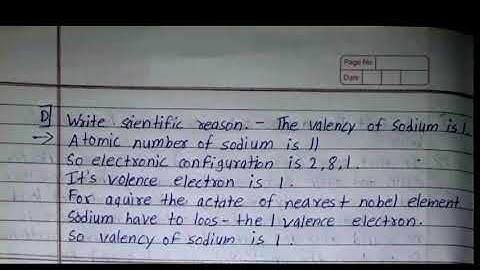 Page No
Date
D] Write sientific reason. - The valency of Sodium is 1.
→ Atomic number of sodium is 11
So electronic configuration is 2,8,1.
It's volence electron is 1.
For aquire the actate of nearest nobel element
Sodium have to loos - the 1 valence electron.
So valency of sodium is 1.